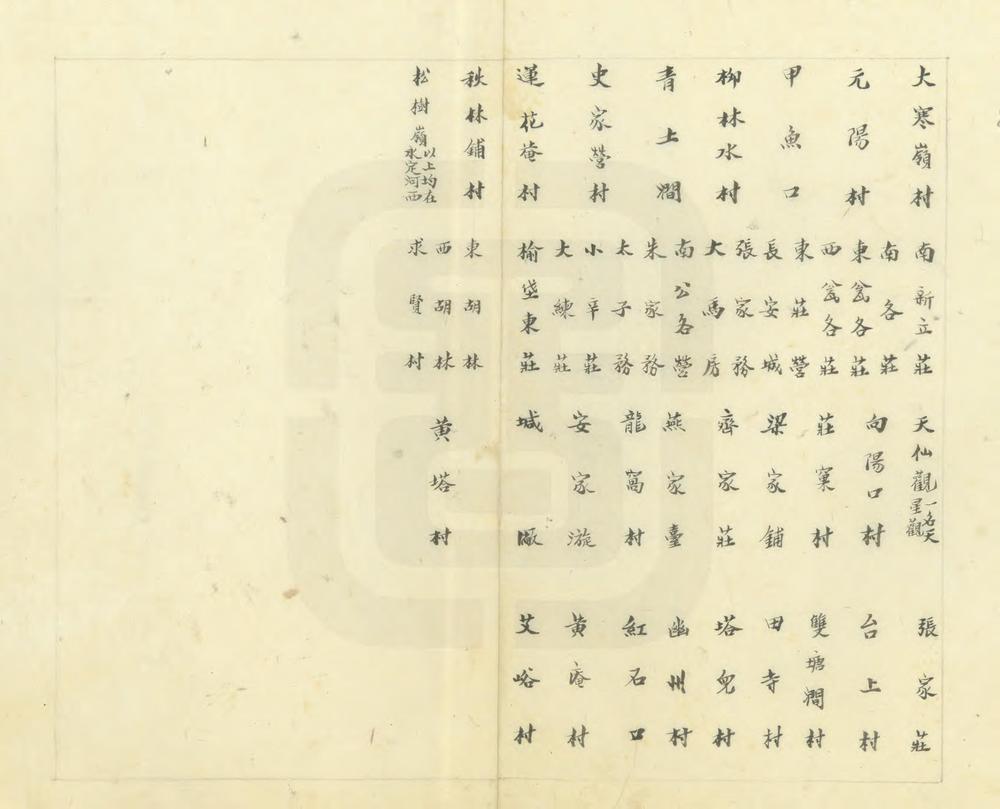 大寒嶺村
元陽村
甲魚口
柳林水村
青土澗
史家營村
蓮花菴村
秋林鋪村
松樹嶺以上均在永定河西
南新立莊
南各莊
東窰各莊
西窰各莊
東莊營
長安城
張家務
大馬房
南公各營
朱家務
太子務
小辛莊
大練莊
榆垡東莊
東胡林
西胡林
求賢村
天仙觀一名天星觀
向陽口村
莊窠村
梁家鋪
齊家莊
燕家臺
龍窩村
安家漩
堿廠
黄塔村
張家莊
台上村
雙塘澗村
田寺村
塔兒村
幽州村
紅石口
黄庵村
艾峪村